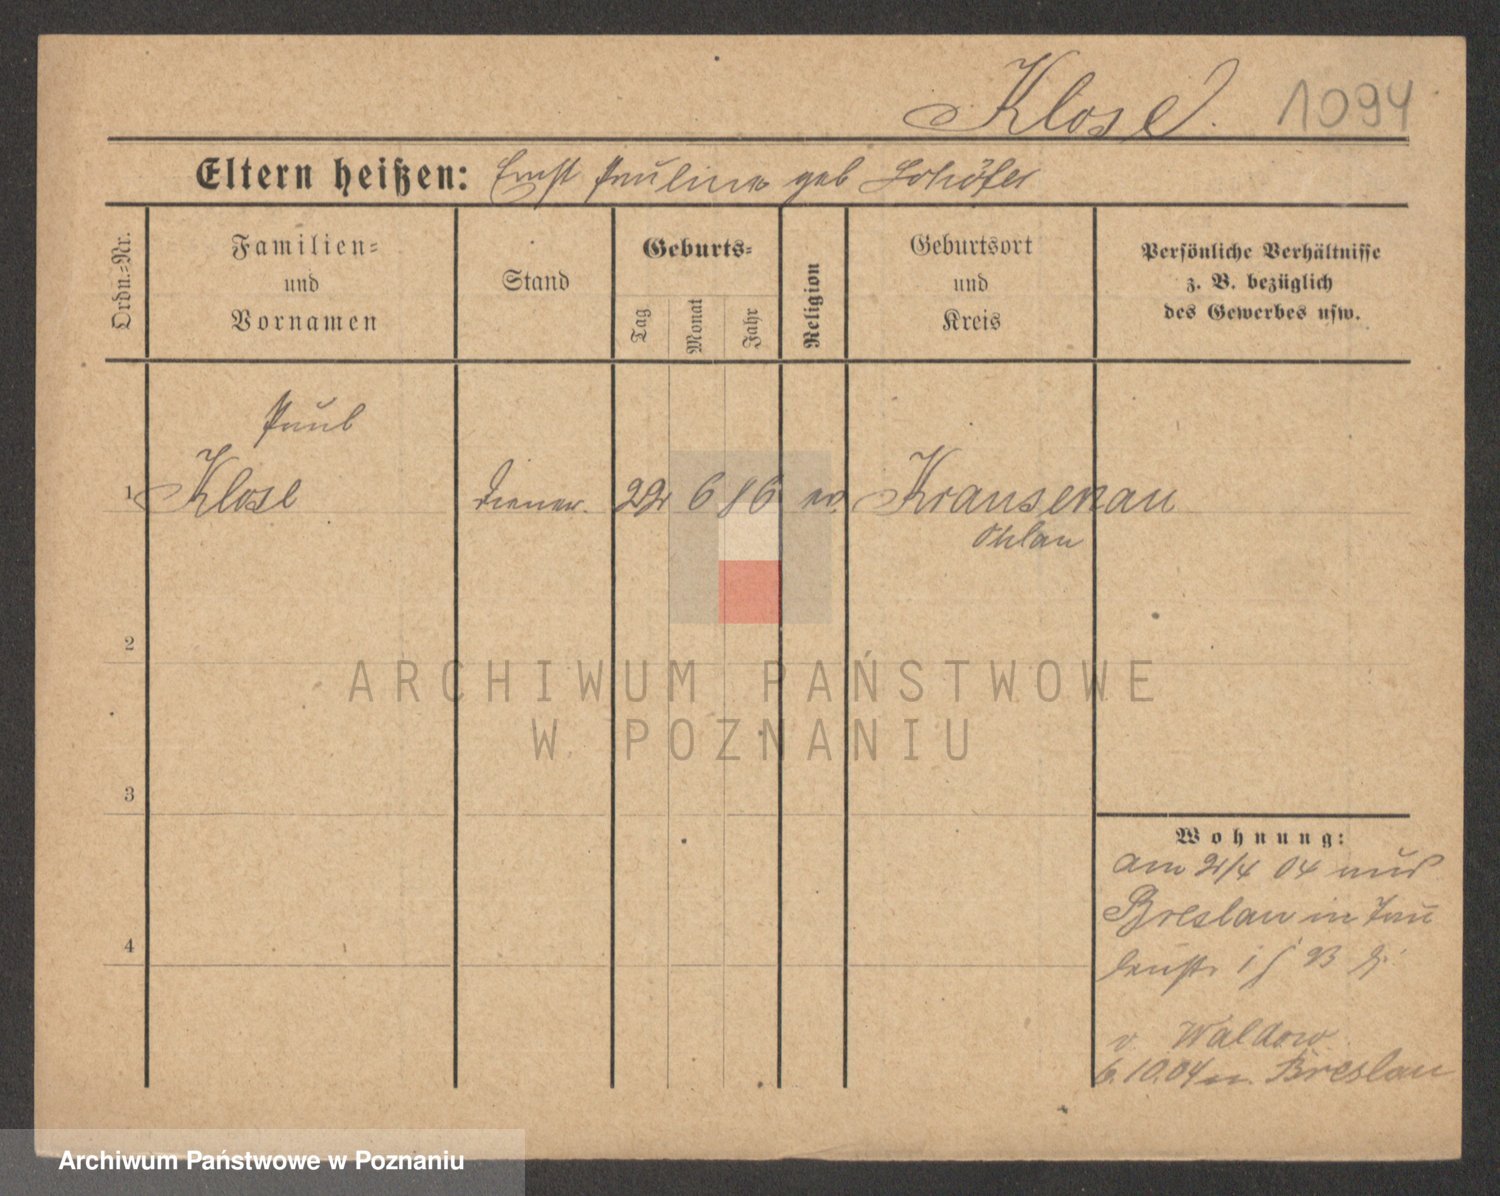 Klose. 1094
Eltern heißen: Ernst Pauline geb Schöfer
Ordn.-Nr.
Familien- und Vornamen
Stand
Geburts-
Tag Monat Jahr
Religion
Geburtsort und Kreis
Persönliche Verhältnisse z. B. bezüglich des Gewerbes usw.
Paul
1 Klose Diener. 22 6 86 ev. Krausenau
Ohlau
2
ARCHIWUM PAŃSTWOWE
W POZNANIU
3
Wohnung:
am 21/4 04 aus
Breslau in Tau
4
v. Waldow
6.10.04 n. Breslau
Archiwum Państwowe w Poznaniu